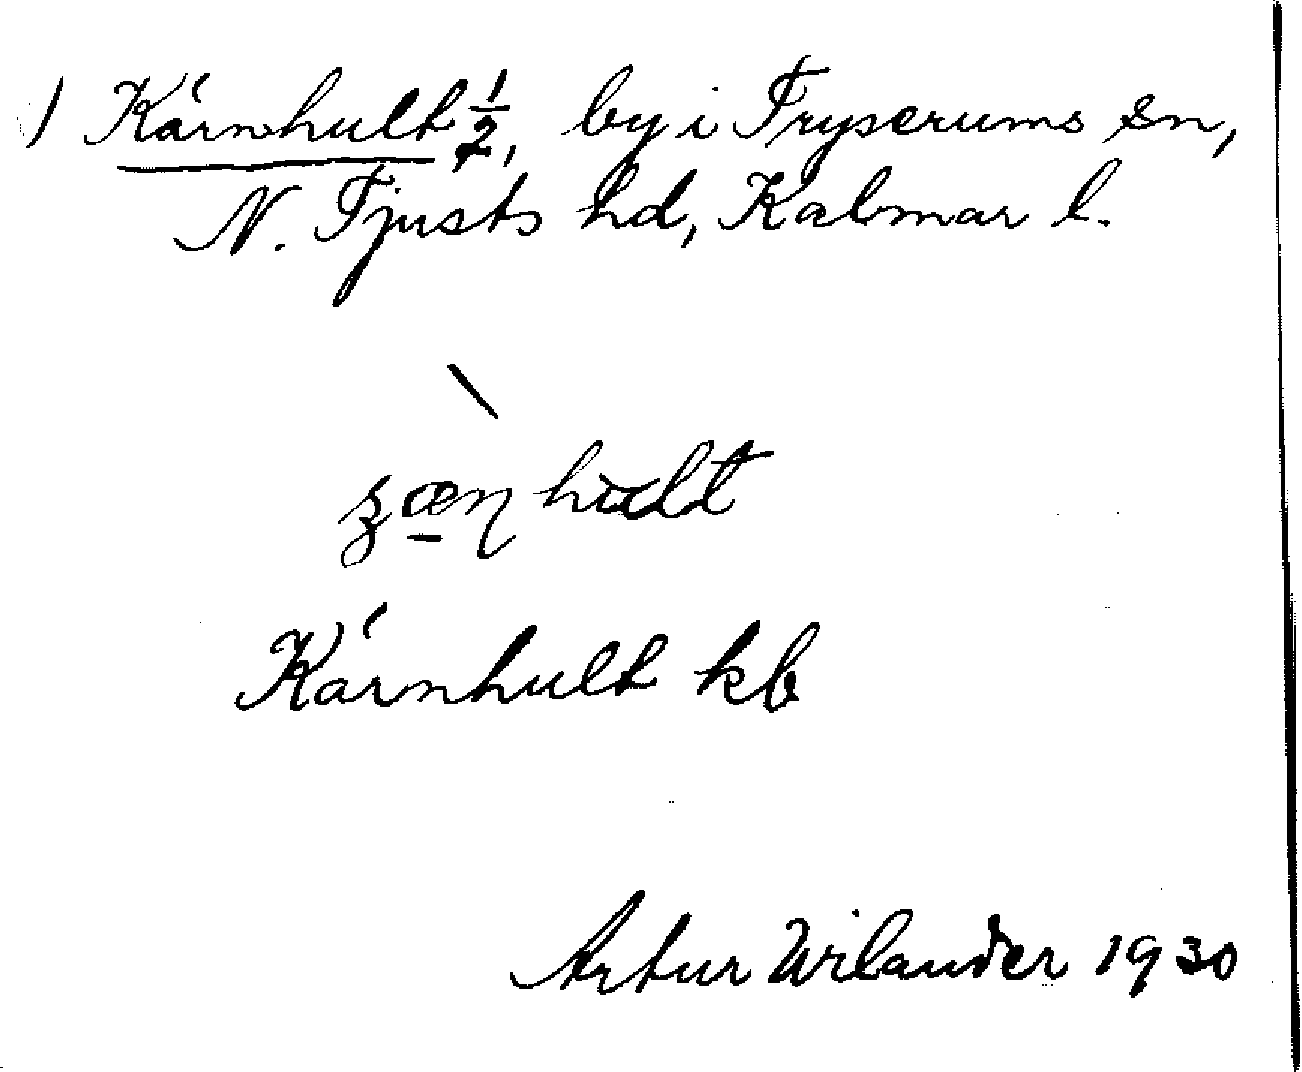 1) Kärnhult 1/2, by i Tryserums sn,
N. Tjusts hd, Kalmar l.
Kärnhult kb
Artur Wilander 1930